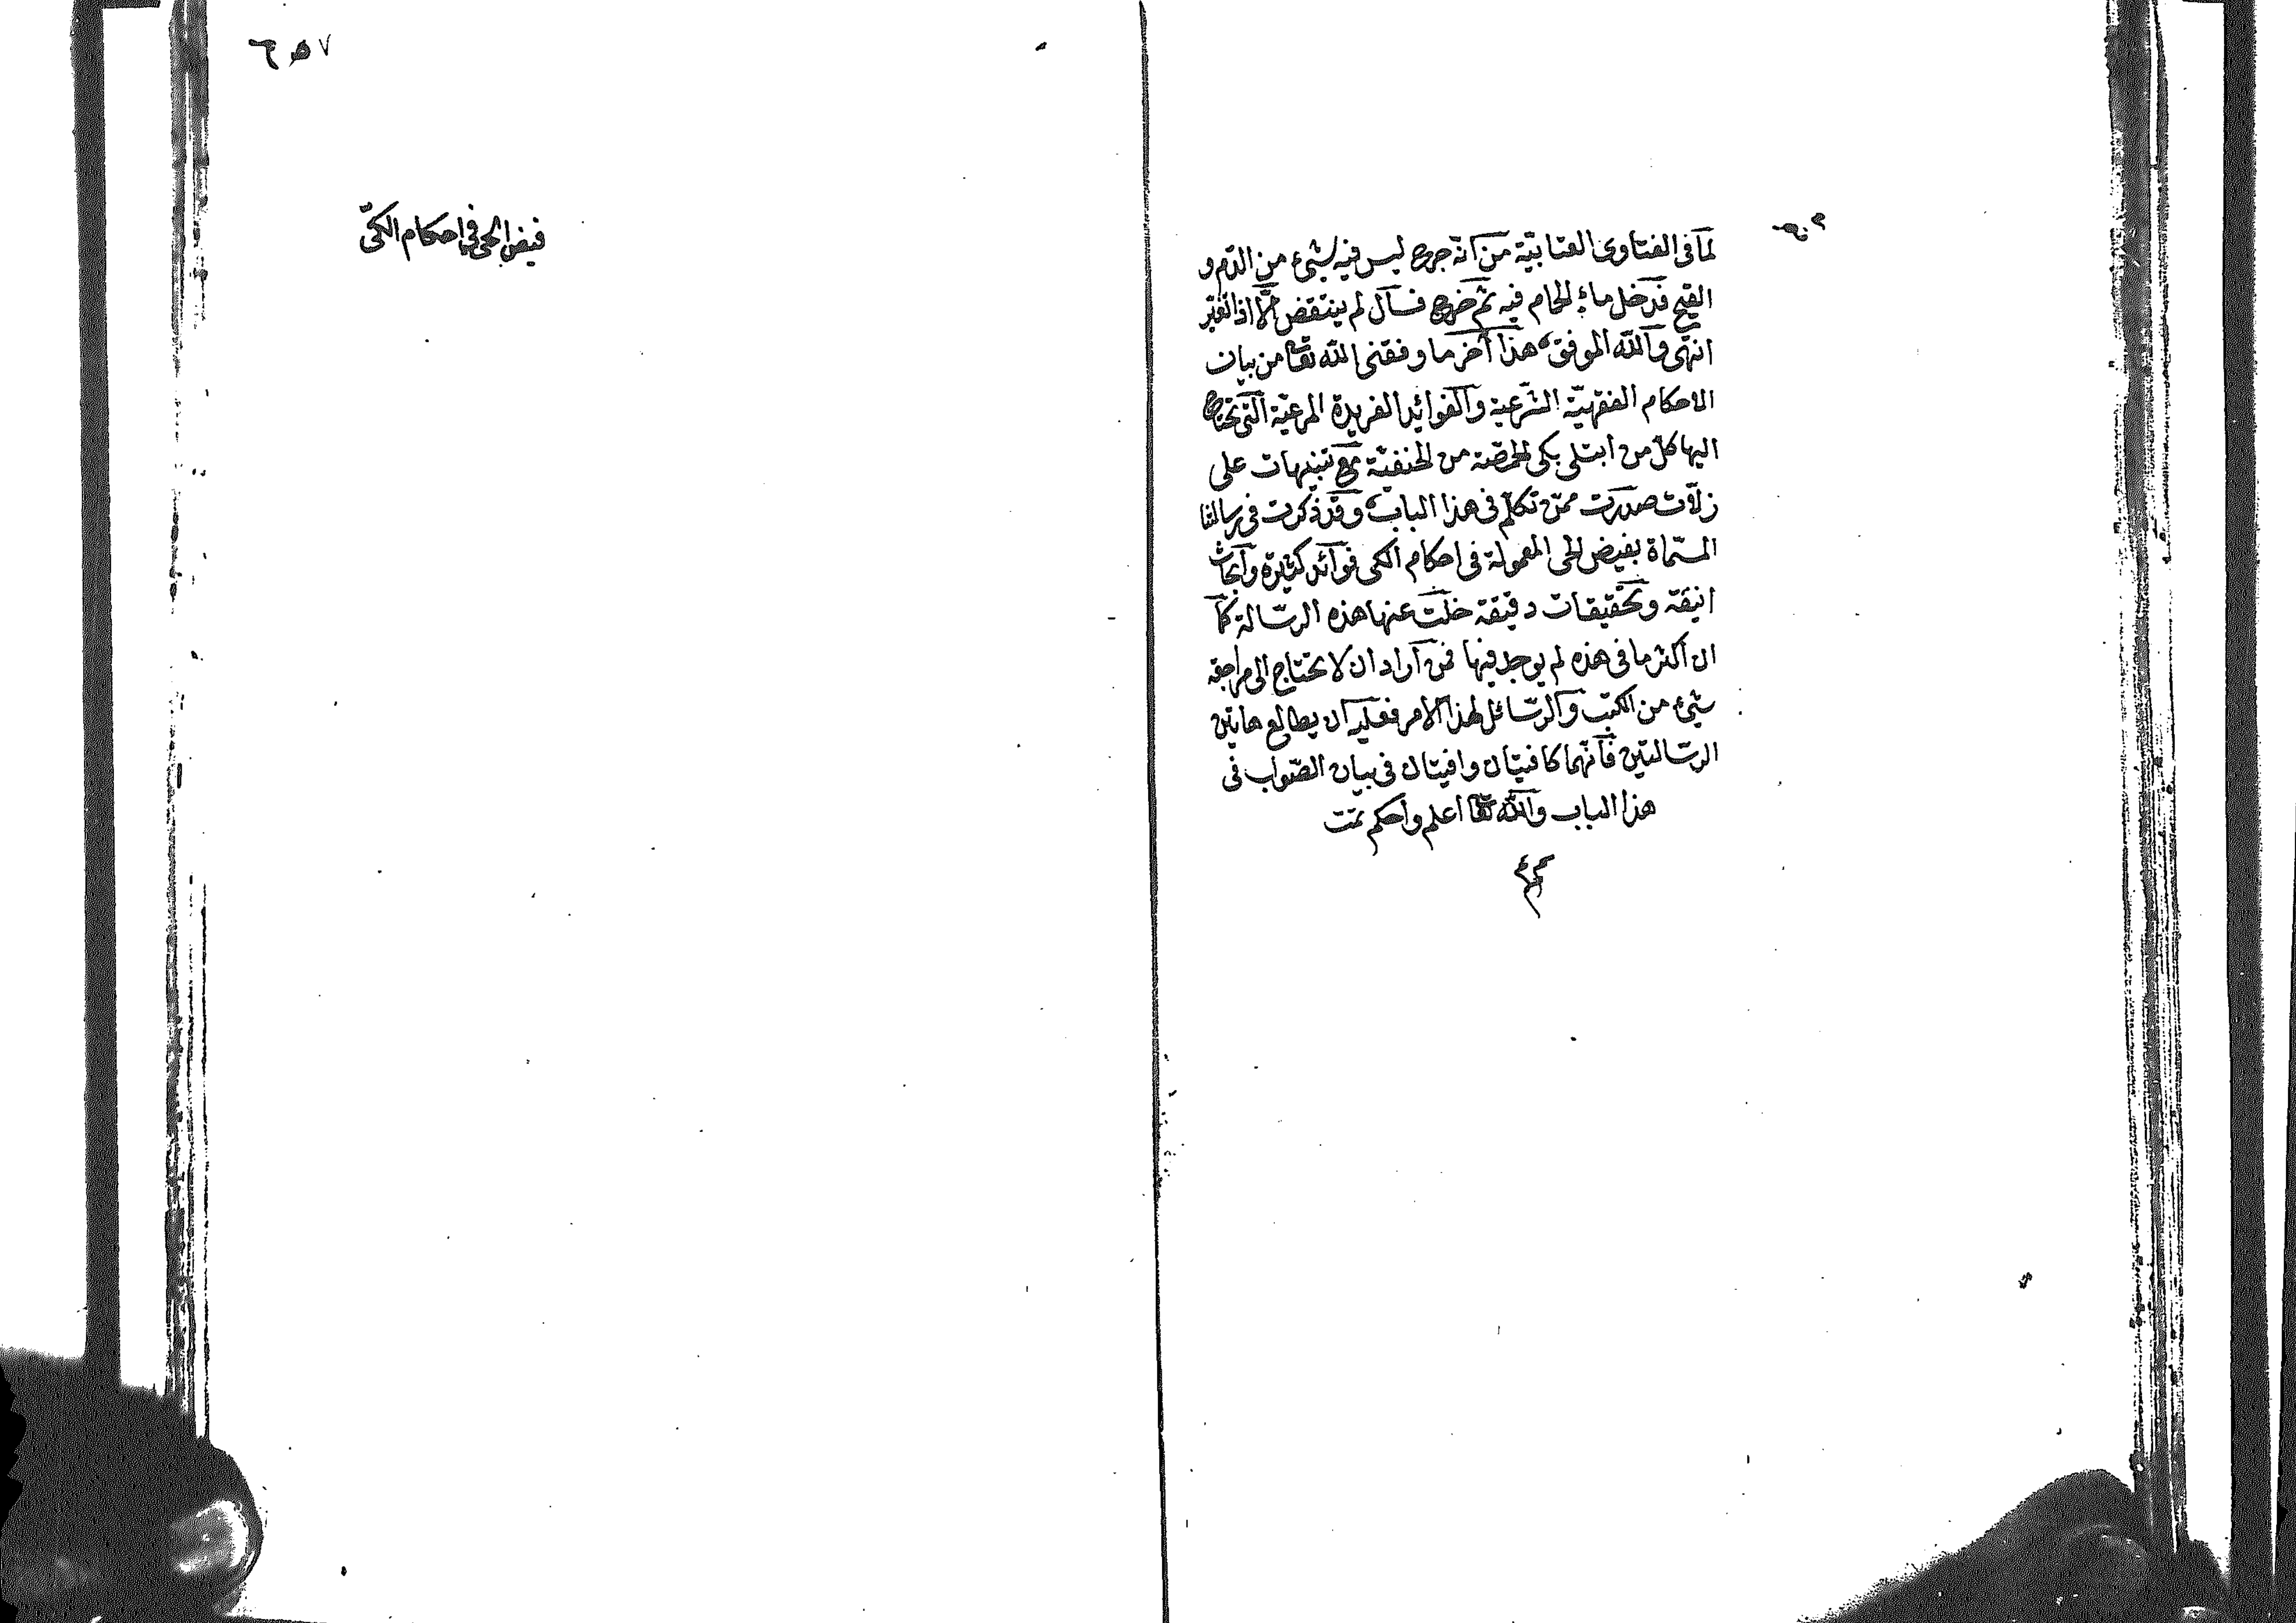 لما في الفتاوى العتابية من انه جرح ليس فيه شيء من الدم و
القيح فدخل ماء الحمام فيه ثم خرج فسال لم ينتقض الا اذا تغير
انتهى والله الموفق هذا آخر ما وفقني الله تعا من بيان
الاحكام الفقهية الشرعية والفوائد الفريدة المرعية التي تحتاج
اليها كل من ابتلى بكي الحمصة من الحنفية مع تنبيهات على
زلات صدرت ممن تكلم في هذا الباب وقد ذكرت في رسالتنا
المسماة بفيض الحي المعمولة في احكام الكي فوائد كثيرة وابحاث
انيقة وتحقيقات دقيقة خلت عنها هذه الرسالة كما
ان اكثر ما في هذه لم يوجد فيها فمن اراد ان لا يحتاج الى مراجعة
شيء من الكتب والرسائل لهذا الامر فعليه ان يطالع هاتين
الرسالتين فانهما كافيتان وافيتان في بيان الصواب في
هذا الباب والله تعا اعلم واحكم تمت
٦٥٧
فيض الحي في احكام الكي